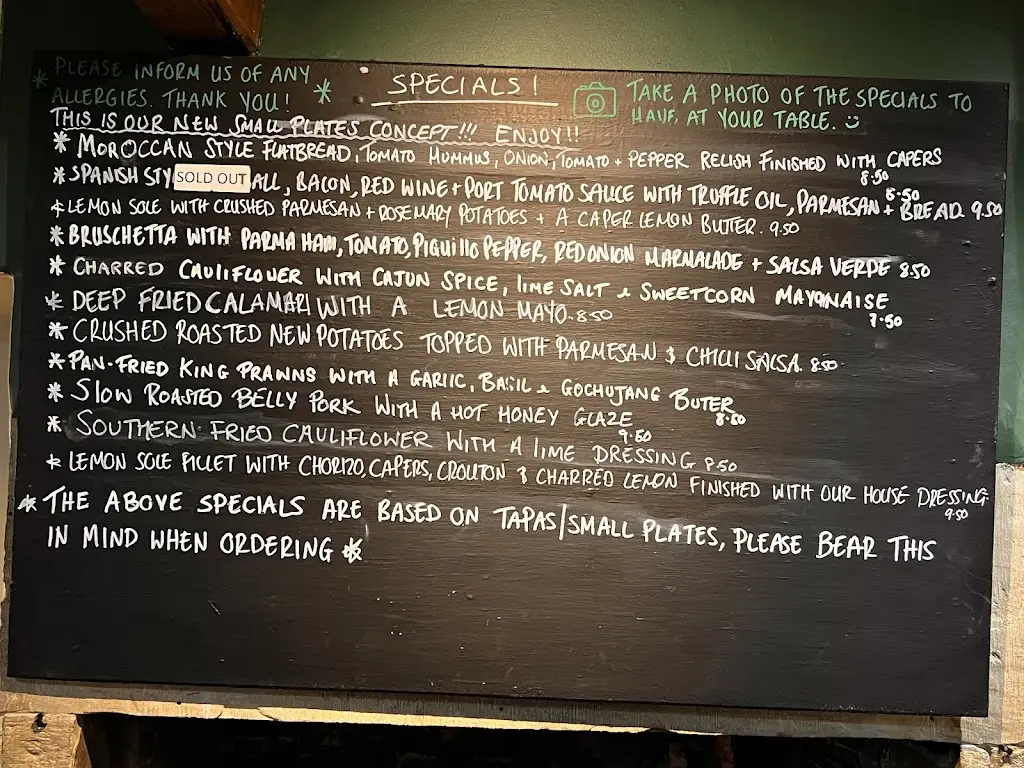 * PLEASE INFORM US OF ANY
ALLERGIES. THANK YOU! *
SPECIALS!
TAKE A PHOTO OF THE SPECIALS TO
HAVE AT YOUR TABLE.
THIS IS OUR NEW SMALL PLATES CONCEPT!!! ENJOY!!
* MOROCCAN STYLE FLATBREAD, TOMATO HUMMUS, ONION, TOMATO + PEPPER RELISH FINISHED WITH CAPERS
8.50
* SPANISH STY SOLD OUT ALL, BACON, RED WINE + PORT TOMATO SAUCE WITH TRUFFLE OIL, PARMESAN + BREAD. 9.50
8.50
* LEMON SOLE WITH CRUSHED PARMESAN + ROSEMARY POTATOES + A CAPER LEMON BUTTER. 9.50
* BRUSCHETTA WITH PARMA HAM, TOMATO, PIQUILLO PEPPER, RED ONION MARMALADE + SALSA VERDE 8.50
* CHARRED CAULIFLOWER WITH CAJUN SPICE, LIME SALT & SWEETCORN MAYONAISE
7.50
* DEEP FRIED CALAMARI WITH A LEMON MAYO. 8.50
* CRUSHED ROASTED NEW POTATOES TOPPED WITH PARMESAN & CHILLI SALSA. 8.50
* PAN-FRIED KING PRAWNS WITH A GARLIC, BASIL & GOCHUJANG BUTER
8.50
* SLOW ROASTED BELLY PORK WITH A HOT HONEY GLAZE
9.50
* SOUTHERN FRIED CAULIFLOWER WITH A LIME DRESSING 8.50
* LEMON SOLE FILLET WITH CHORIZO, CAPERS, CROUTON & CHARRED LEMON FINISHED WITH OUR HOUSE DRESSING.
9.50
* THE ABOVE SPECIALS ARE BASED ON TAPAS/SMALL PLATES, PLEASE BEAR THIS
IN MIND WHEN ORDERING *